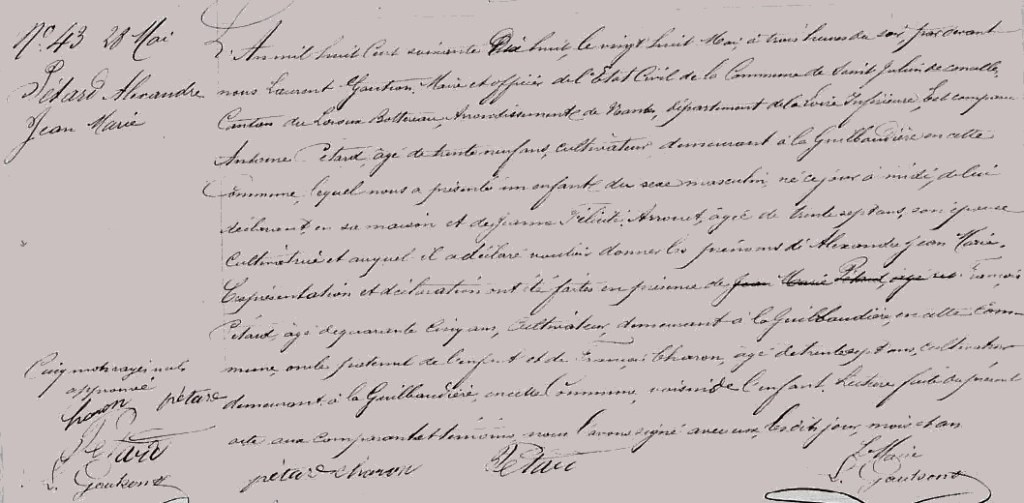 N° 43 28 Mai
Pétard Alexandre
Jean Marie
L'An mil huit cent soixante Dix huit, le vingt huit Mai, à trois heures du soir, par devant
nous Laurent Gautron, Maire et officier de l'Etat Civil de la Commune de Saint Julien de concelles,
Canton du Loroux Bottereau, Arrondissement de Nantes, département de la Loire Inférieure, Est comparu
Antoine Pétard, âgé de trente neuf ans, cultivateur, demeurant à la Guilbaudière en cette
Commune, lequel nous a présenté un enfant du sexe masculin, né ce jour à midi, de lui
déclarant, en sa maison et de Jeanne Félicité Arrouet, âgée de trente sept ans, son épouse
Cultivatrice et auquel il a déclaré vouloir donner les prénoms d'Alexandre Jean Marie.
Ces présentation et déclaration ont été faites en présence de Jean Marie Pétard, âgé François
Pétard, âgé de quarante cinq ans, Cultivateur, demeurant à la Guilbaudière, en cette Com-
mune, oncle paternel de l'enfant et de François Charon, âgé de trente sept ans, cultivateur
demeurant à la Guilbaudière, en cette Commune, voisin de l'enfant. Lecture faite du présent
acte aux comparant et témoins, nous l'avons signé avec eux, les dits jour, mois et an
Cinq mots rayés nuls
approuvé
charon pétard
Pétard
L. Gautron
pétard charon Pétard
Le Maire
L. Gautron